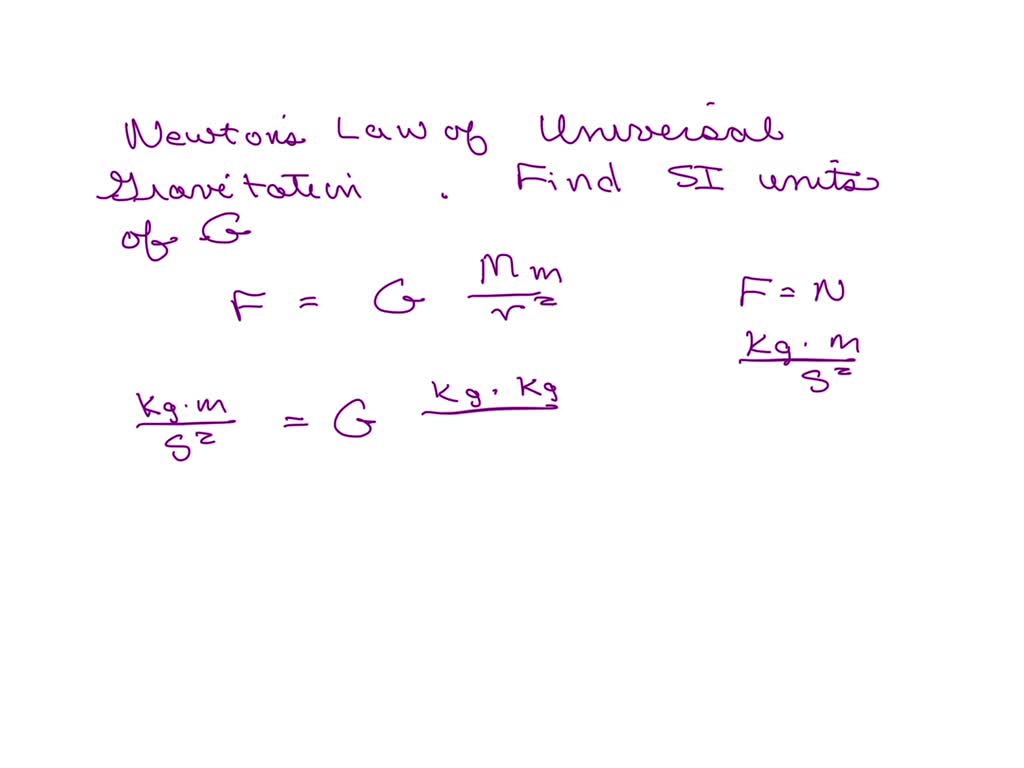 Newton's Law of Universal
Gravitation. Find SI units
of G
F = G Mm/r²
F = N
kg·m/s²
kg·m/s² = G kg·kg/